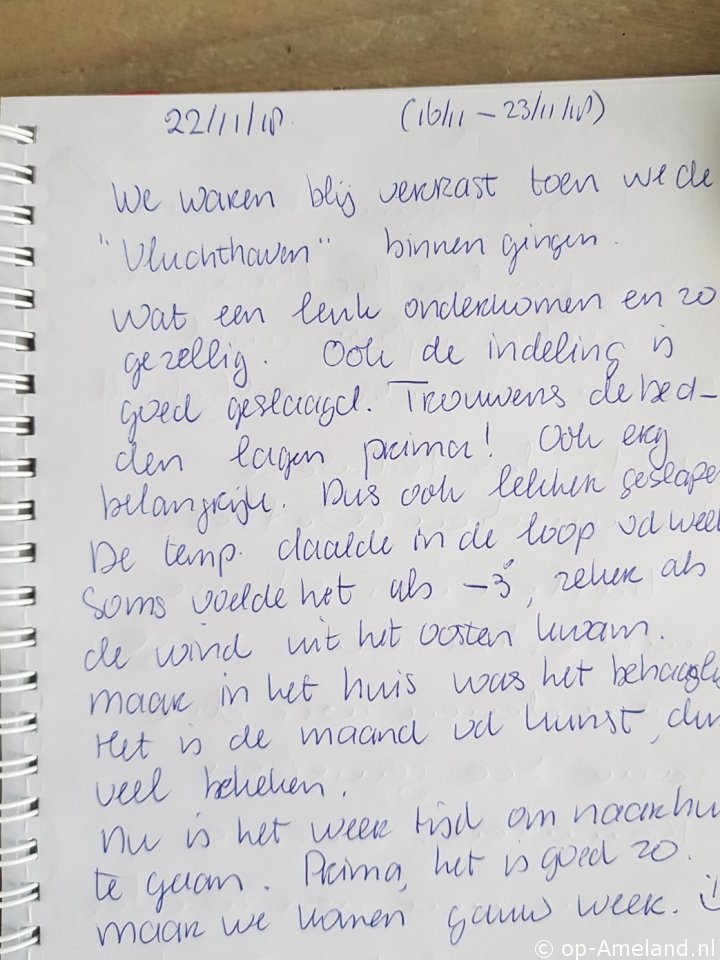 22/11/18 (16/11 - 23/11/18)
We waren blij verrast toen we de
"Vluchthaven" binnen gingen.
Wat een leuk onderkomen en zo
gezellig. Ook de indeling is
goed geslaagd. Trouwens de bed-
den lagen prima! Ook erg
belangrijk. Dus ook lekker geslapen
De temp. daalde in de loop vd week
Soms voelde het als -3°, zeker als
de wind uit het oosten kwam.
maar in het huis was het behaagli
Het is de maand vd kunst, dus
veel bekeken.
Nu is het weer tijd om naar hu
te gaan. Prima, het is goed zo.
maar we komen gauw weer. :)
© op-Ameland.nl